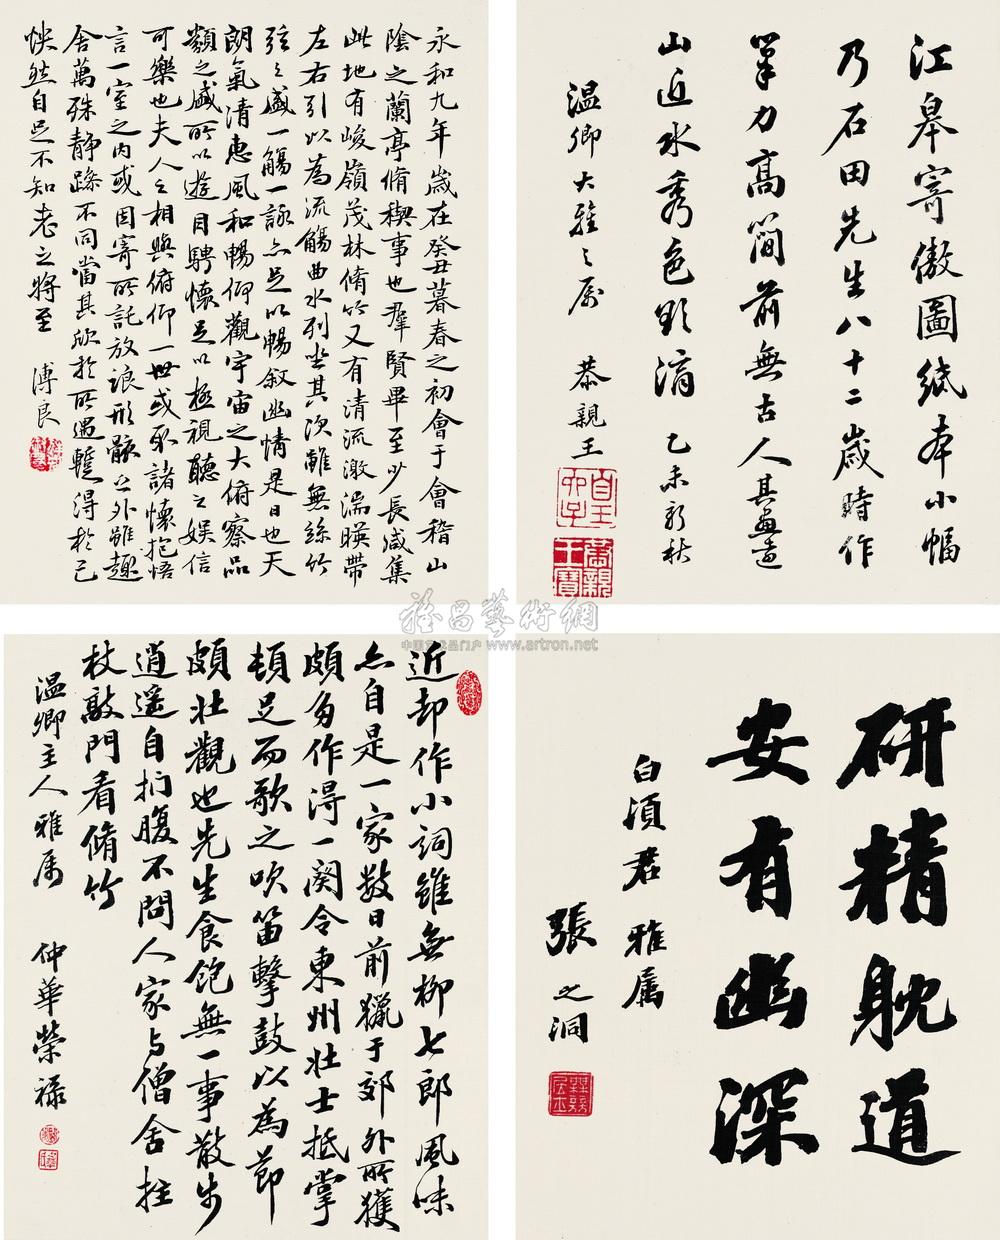 江皋寄傲圖紙本小幅
乃石田先生八十二歲時作
筆力高簡前無古人其畫遠
山近水秀色可湌 乙未新秋
溫卿大雅之屬 恭親王
永和九年歲在癸丑暮春之初會于會稽山
陰之蘭亭脩稧事也羣賢畢至少長咸集
此地有峻嶺茂林脩竹又有清流激湍暎帶
左右引以為流觴曲水列坐其次雖無絲竹
弦之盛一觴一詠亦足以暢敘幽情是日也天
朗氣清惠風和暢仰觀宇宙之大俯察品
類之盛所以遊目騁懷足以極視聽之娛信
可樂也夫人之相與俯仰一世或取諸懷抱悟
言一室之內或因寄所託放浪形骸之外雖趣
舍萬殊靜躁不同當其欣於所遇蹔得於己
怏然自足不知老之將至 溥良
研精耽道
安有幽深
白須君雅屬
張之洞
近却作小詞雖無柳七郎風味
亦自是一家數日前獵于郊外所獲
頗多作得一闋令東州壯士抵掌
頓足而歌之吹笛擊鼓以為節
頗壯觀也先生食飽無一事散步
逍遥自捫腹不問人家與僧舍拄
杖敲門看脩竹
溫卿主人雅屬 仲華榮祿
中国艺术品门户 www.artron.net